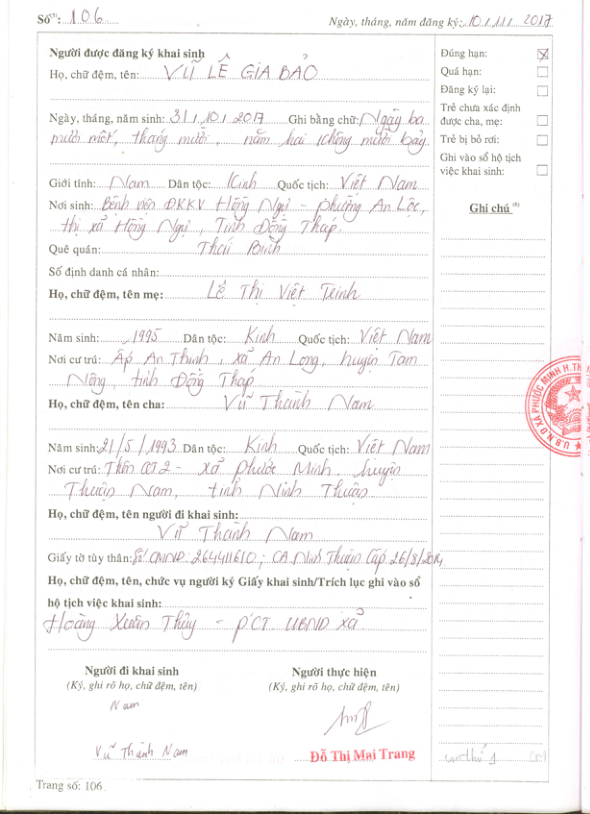 Số⁽⁵⁾: 106
Ngày, tháng, năm đăng ký: 10/11/2017
Người được đăng ký khai sinh
Họ, chữ đệm, tên: VŨ LÊ GIA BẢO
Ngày, tháng, năm sinh: 31/10/2017 Ghi bằng chữ: Ngày ba
mươi mốt, tháng mười, năm hai không mười bảy
Giới tính: Nam Dân tộc: Kinh Quốc tịch: Việt Nam
Nơi sinh: Bệnh viện ĐKKV Hồng Ngự - phường An Lộc,
thị xã Hồng Ngự, Tỉnh Đồng Tháp
Quê quán: Thái Bình
Số định danh cá nhân:
Họ, chữ đệm, tên mẹ: Lê Thị Việt Trinh
Năm sinh: 1995 Dân tộc: Kinh Quốc tịch: Việt Nam
Nơi cư trú: Ấp An Thịnh, xã An Long, huyện Tam
Nông, tỉnh Đồng Tháp
Họ, chữ đệm, tên cha: Vũ Thành Nam
Năm sinh: 21/5/1993 Dân tộc: Kinh Quốc tịch: Việt Nam
Nơi cư trú: Thôn 2 - xã Phước Minh, huyện
Thuận Nam, tỉnh Ninh Thuận
Họ, chữ đệm, tên người đi khai sinh:
Vũ Thành Nam
Giấy tờ tùy thân: Số CMND: 264411610; CA Ninh Thuận Cấp 26/8/2014
Họ, chữ đệm, tên, chức vụ người ký Giấy khai sinh/Trích lục ghi vào sổ
hộ tịch việc khai sinh:
Hoàng Xuân Thủy - PCT. UBND xã
Người đi khai sinh
(Ký, ghi rõ họ, chữ đệm, tên)
Nam
Vũ Thành Nam
Người thực hiện
(Ký, ghi rõ họ, chữ đệm, tên)
Đỗ Thị Mai Trang
Đúng hạn: ☒
Quá hạn: ☐
Đăng ký lại: ☐
Trẻ chưa xác định
được cha, mẹ: ☐
Trẻ bị bỏ rơi: ☐
Ghi vào sổ hộ tịch
việc khai sinh: ☐
Ghi chú ⁽⁶⁾
U.B.N.D XÃ PHƯỚC MINH H.TH
Trang số: 106